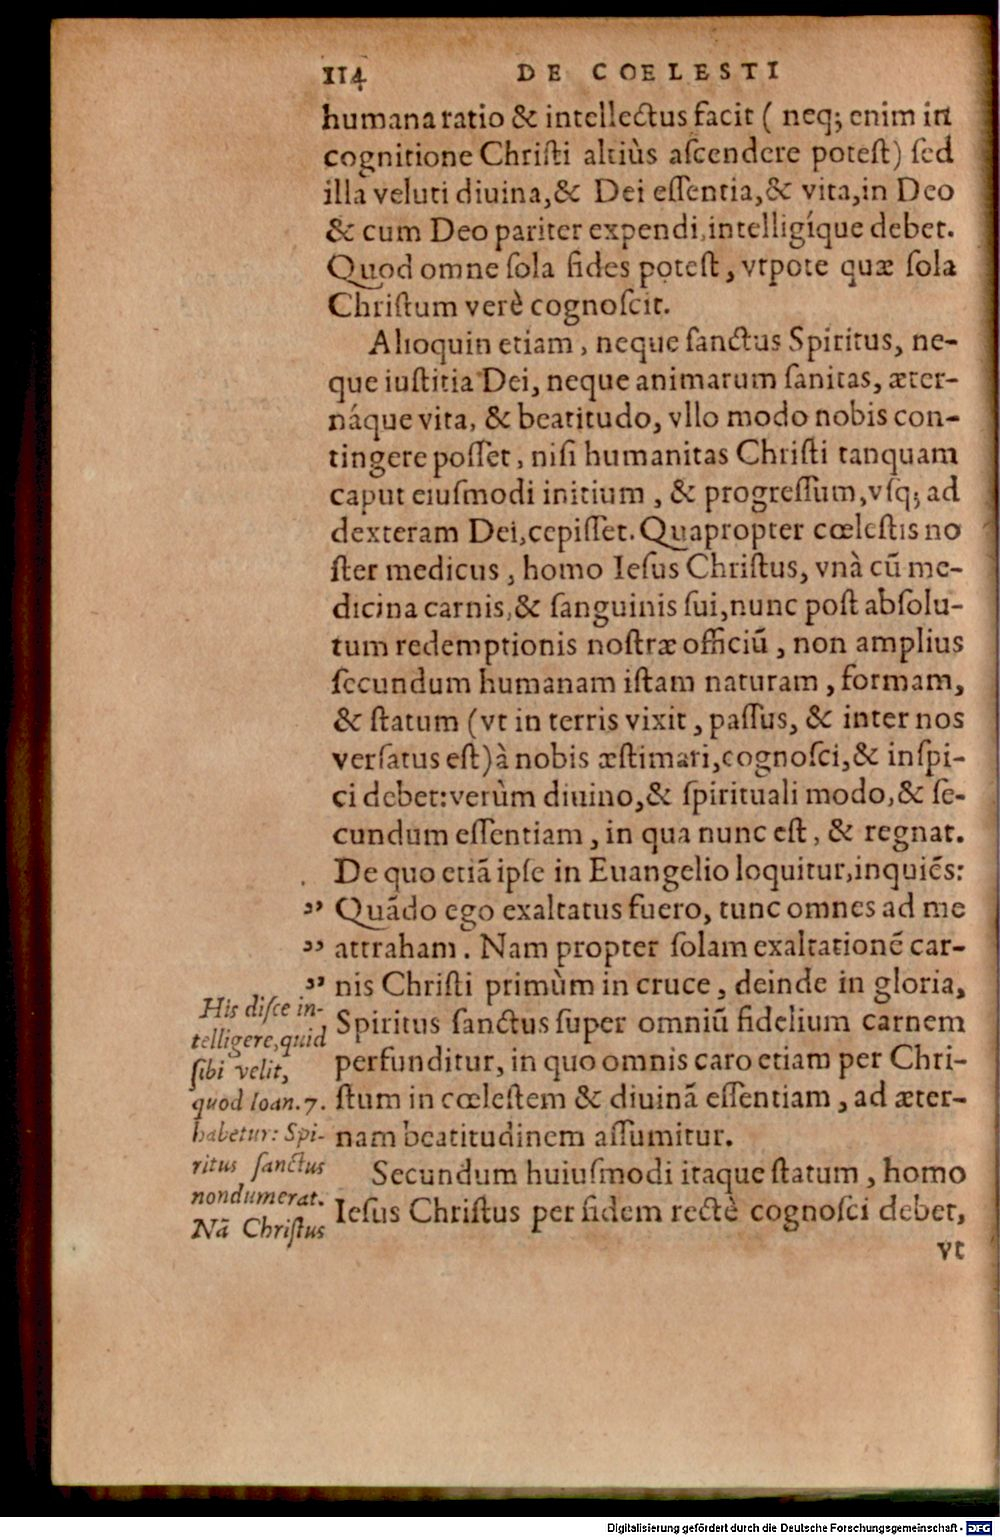 114 DE COELESTI
humana ratio & intellectus facit ( neq; enim in
cognitione Christi altiùs ascendere potest) sed
illa veluti diuina,& Dei essentia,& vita,in Deo
& cum Deo pariter expendi,intelligíque debet.
Quod omne sola fides potest, vtpote quæ sola
Christum verè cognoscit.
Alioquin etiam, neque sanctus Spiritus, ne-
que iustitia Dei, neque animarum sanitas, æter-
náque vita, & beatitudo, vllo modo nobis con-
tingere posset, nisi humanitas Christi tanquam
caput eiusmodi initium, & progressum,vsq; ad
dexteram Dei,cepisset. Quapropter cœlestis no
ster medicus, homo Iesus Christus, vnà cũ me-
dicina carnis,& sanguinis sui,nunc post absolu-
tum redemptionis nostræ officiũ, non amplius
secundum humanam istam naturam, formam,
& statum (vt in terris vixit, passus, & inter nos
versatus est)à nobis æstimari,cognosci,& inspi-
ci debet:verùm diuino,& spirituali modo,& se-
cundum essentiam, in qua nunc est, & regnat.
De quo etiã ipse in Euangelio loquitur,inquiẽs:
„ Quãdo ego exaltatus fuero, tunc omnes ad me
„ attraham. Nam propter solam exaltationẽ car-
„ nis Christi primùm in cruce, deinde in gloria,
Spiritus sanctus super omniũ fidelium carnem
perfunditur, in quo omnis caro etiam per Chri-
stum in cœlestem & diuinã essentiam, ad æter-
nam beatitudinem assumitur.
Secundum huiusmodi itaque statum, homo
Iesus Christus per fidem rectè cognosci debet,
vt
His disce in-
telligere,quid
sibi velit,
quod Ioan.7.
habetur: Spi-
ritus sanctus
nondum erat.
Nã Christus
Digitalisierung gefördert durch die Deutsche Forschungsgemeinschaft - DFG